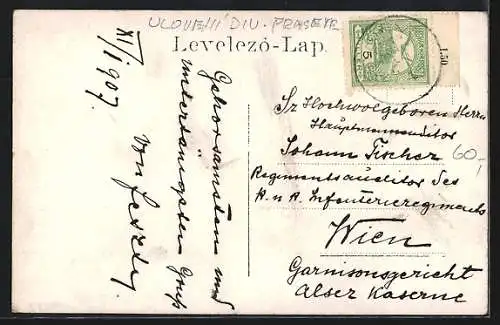 Levelező-Lap.
XI/1907
Gehorsamsten und
untertänigsten Gruß
von
Sr Hochwolgeboren Herrn
Hauptmannauditor
Johann Fischer
60,-
Regimentsauditor des
K. u. K. Infanterieregiments
Wien
Garnisonsgericht
Alser Kaserne
5
1.50